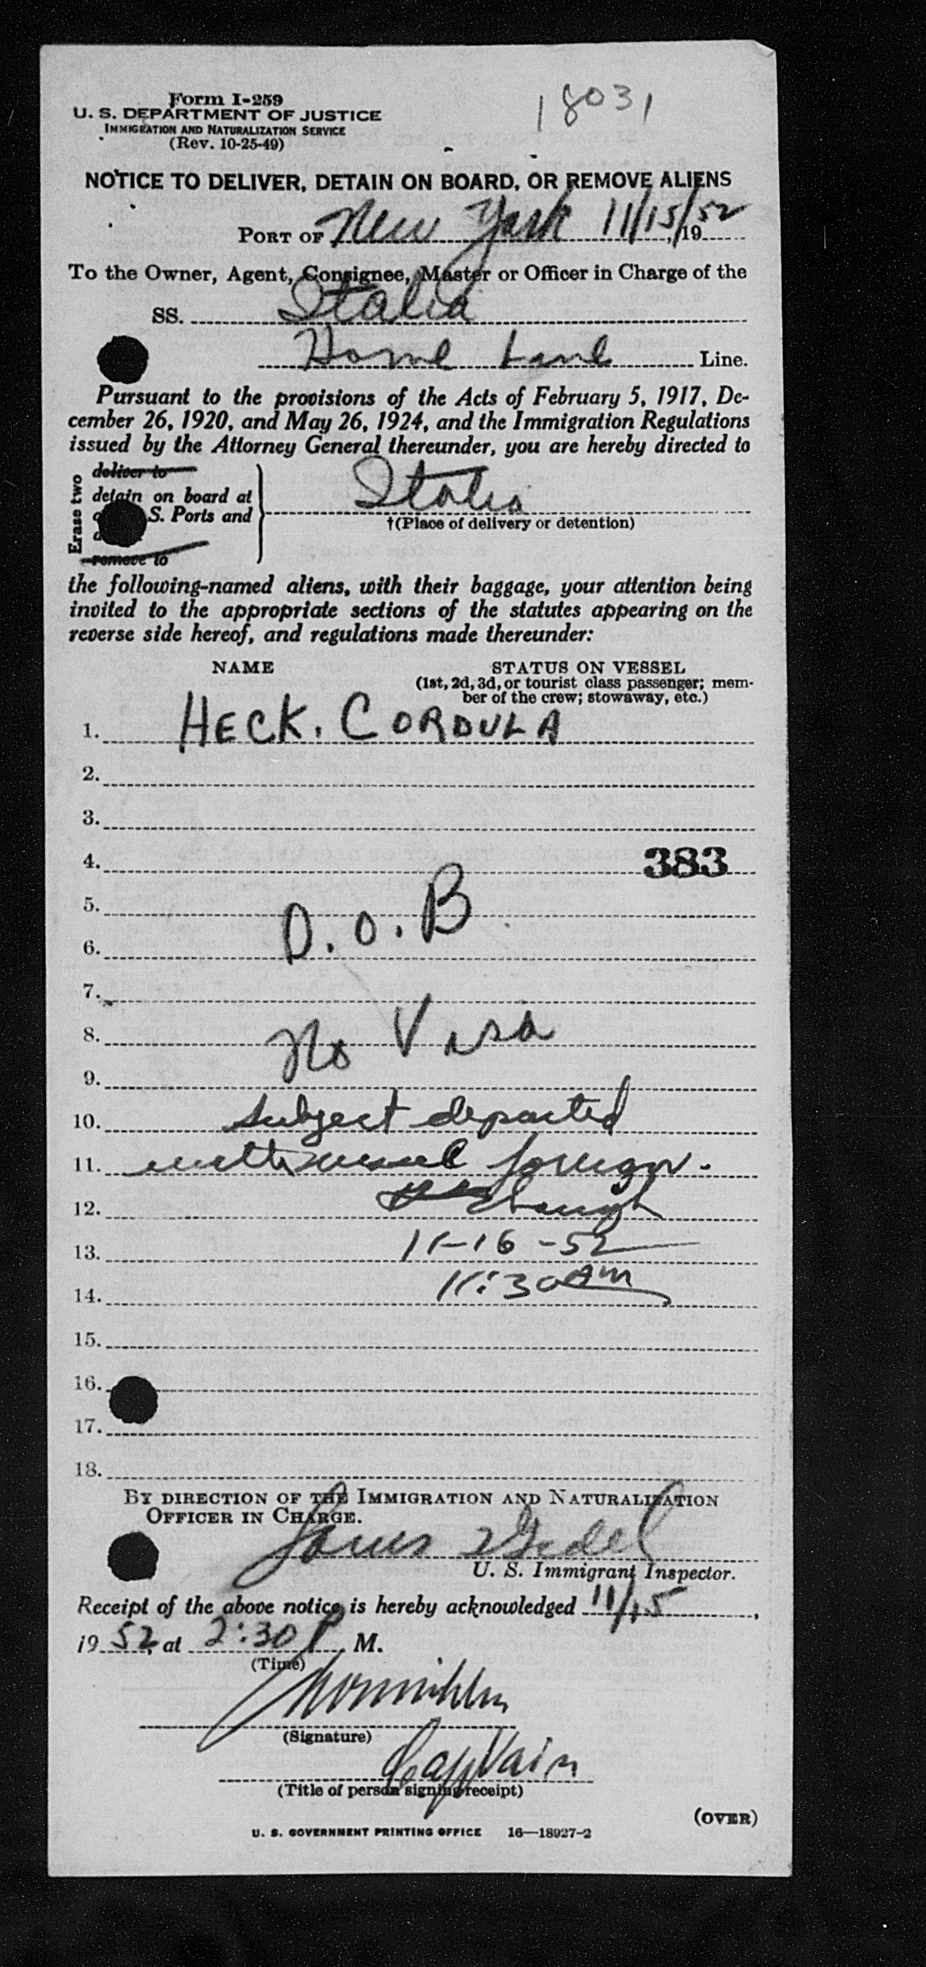 Form I-259
18031
U. S. DEPARTMENT OF JUSTICE
IMMIGRATION AND NATURALIZATION SERVICE
(Rev. 10-25-49)
NOTICE TO DELIVER, DETAIN ON BOARD, OR REMOVE ALIENS
PORT OF New York 11/15/, 1952
To the Owner, Agent, Consignee, Master or Officer in Charge of the
SS. Italia
Home Line Line.
Pursuant to the provisions of the Acts of February 5, 1917, De-
cember 26, 1920, and May 26, 1924, and the Immigration Regulations
issued by the Attorney General thereunder, you are hereby directed to
Erase two
deliver to
detain on board at
S. Ports and
remove to
Italia
†(Place of delivery or detention)
the following-named aliens, with their baggage, your attention being
invited to the appropriate sections of the statutes appearing on the
reverse side hereof, and regulations made thereunder:
NAME STATUS ON VESSEL
(1st, 2d, 3d, or tourist class passenger; mem-
ber of the crew; stowaway, etc.)
1. HECK, CORDULA
2.
3.
4. 383
5.
6. D.O.B.
7.
8. No Visa
9.
10. Subject departed
11. with vessel foreign.
12.
13. 11-16-52
14. 11:30 AM
15.
16.
17.
18.
BY DIRECTION OF THE IMMIGRATION AND NATURALIZATION
OFFICER IN CHARGE.
U. S. Immigrant Inspector.
Receipt of the above notice is hereby acknowledged 11/15,
1952, at 2:30 P. M.
(Time)
(Signature)
Captain
(Title of person signing receipt)
(OVER)
U. S. GOVERNMENT PRINTING OFFICE 16—18927-2